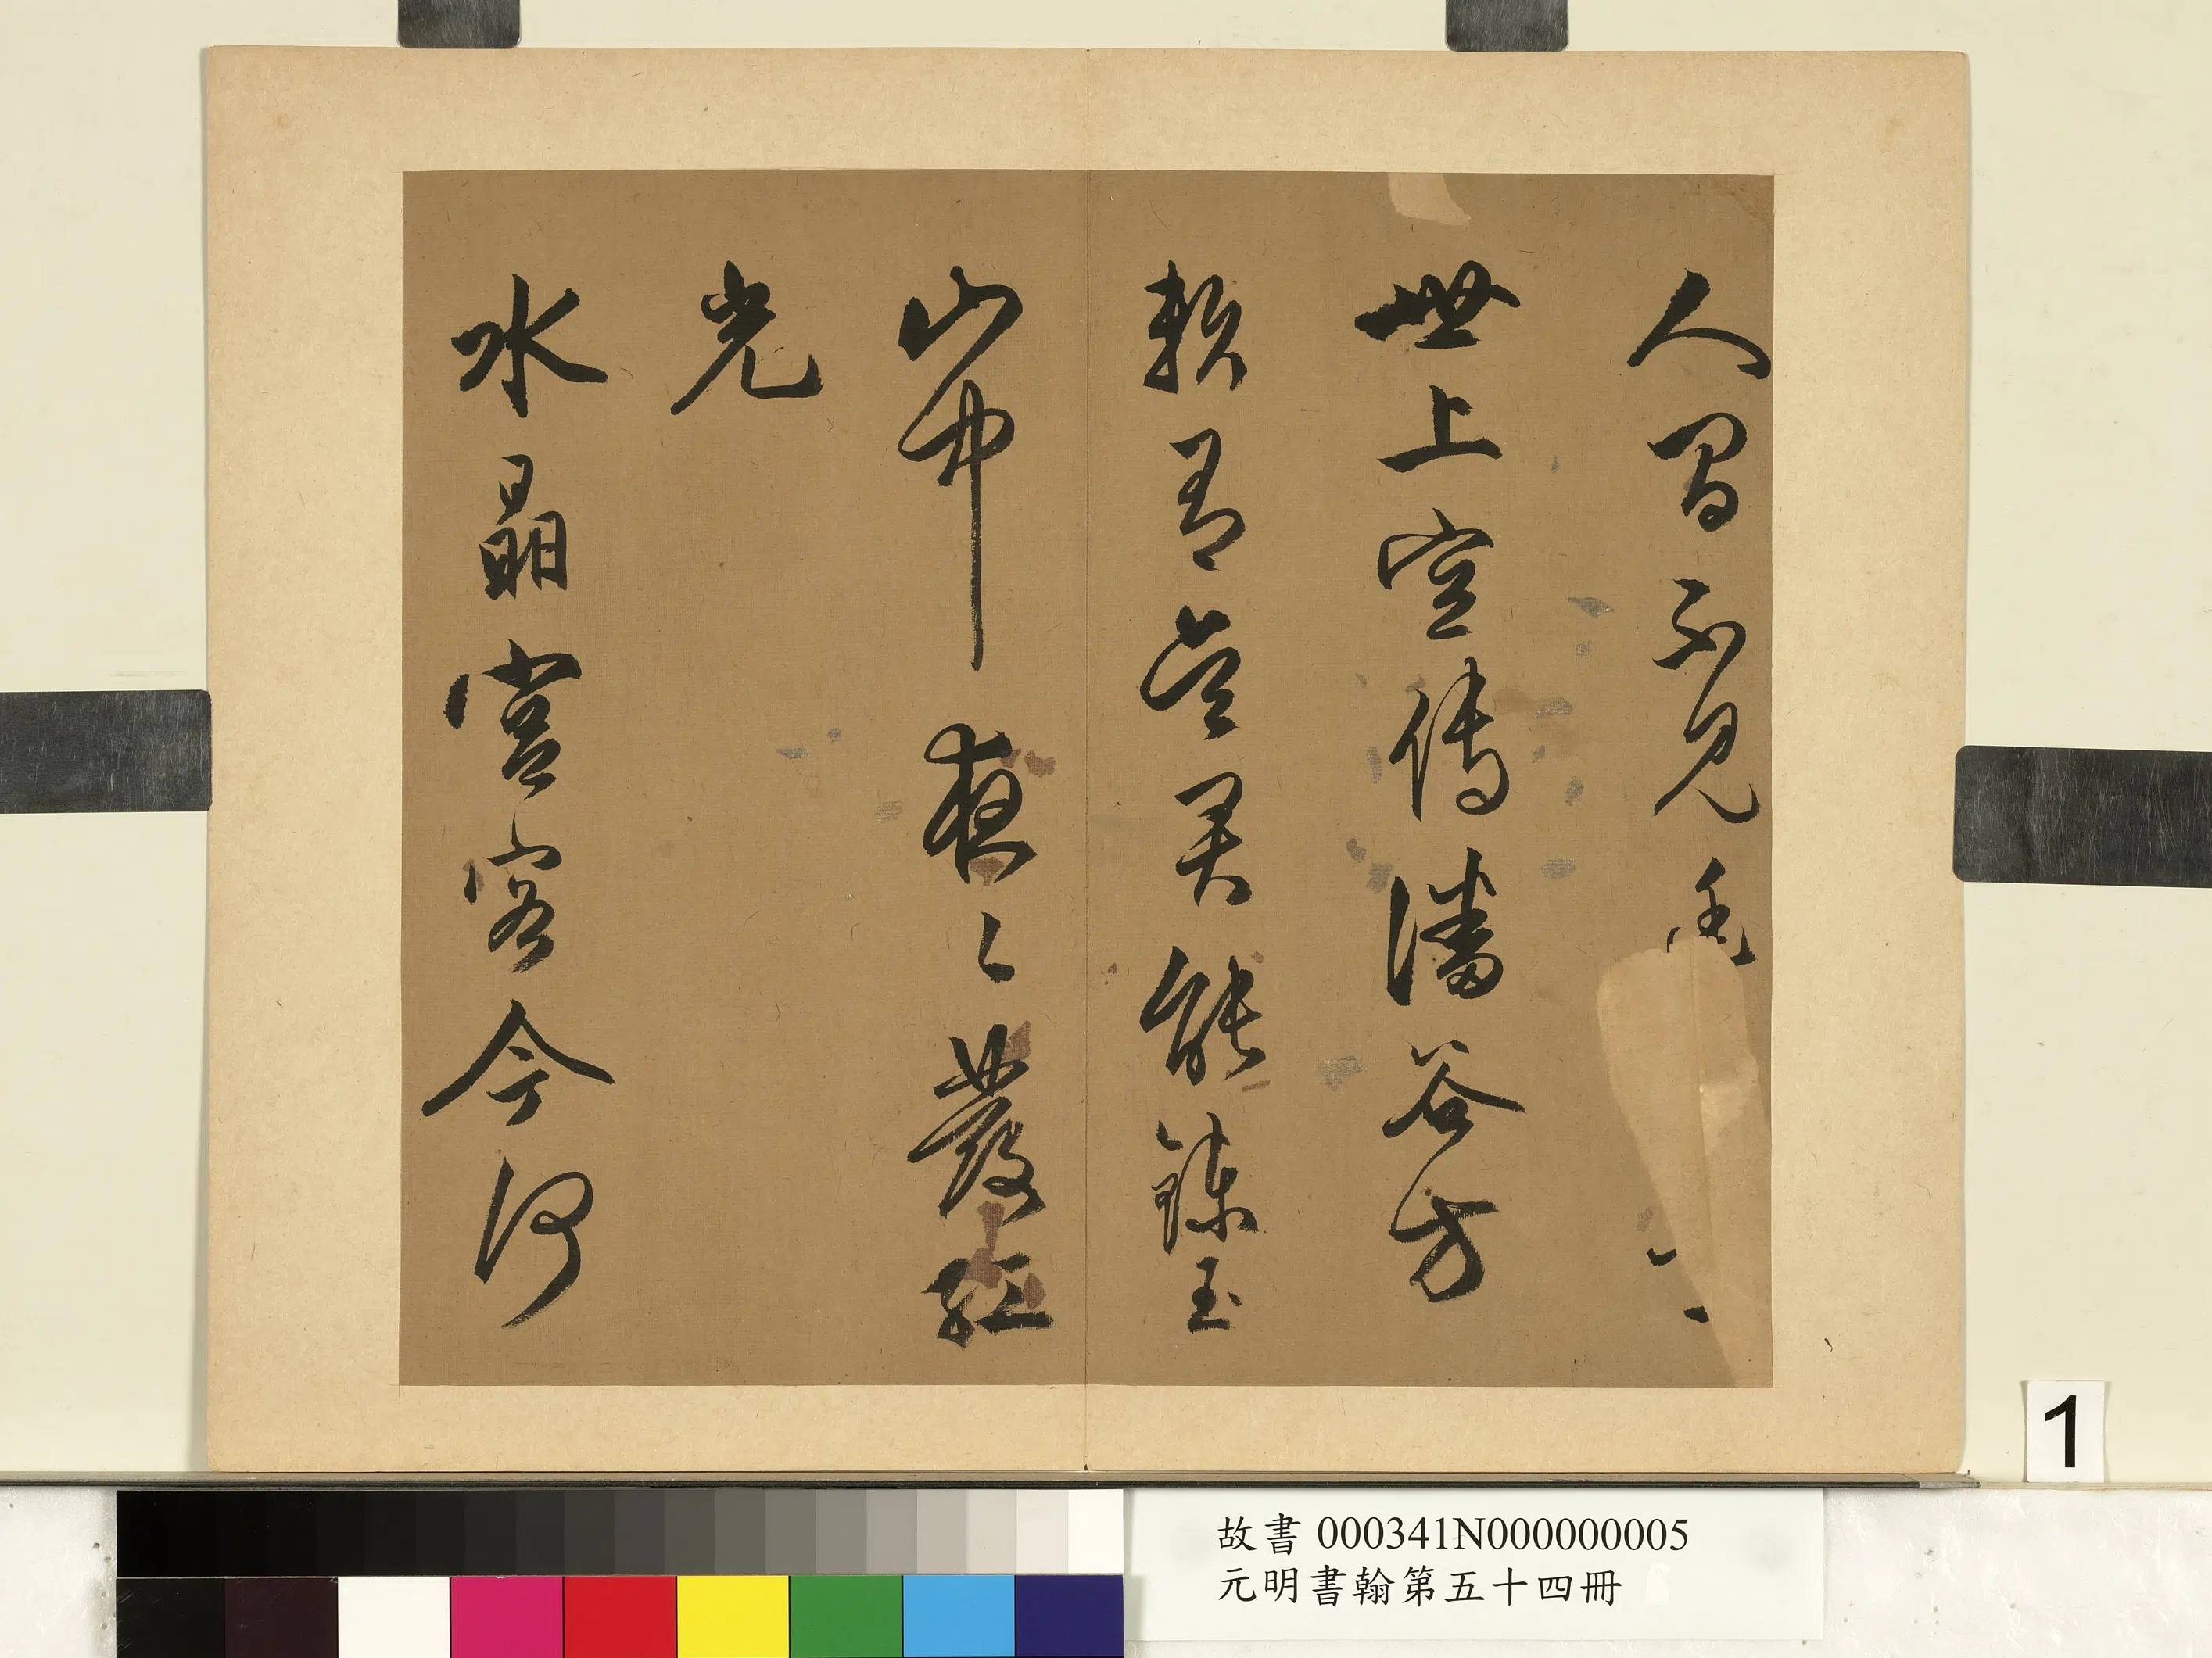 人間不見
世上空傳潘谷方
賴有能鍊玉
山中夜〻發虹
光
水晶宮客今何
1
故書 000341N000000005
元明書翰第五十四冊